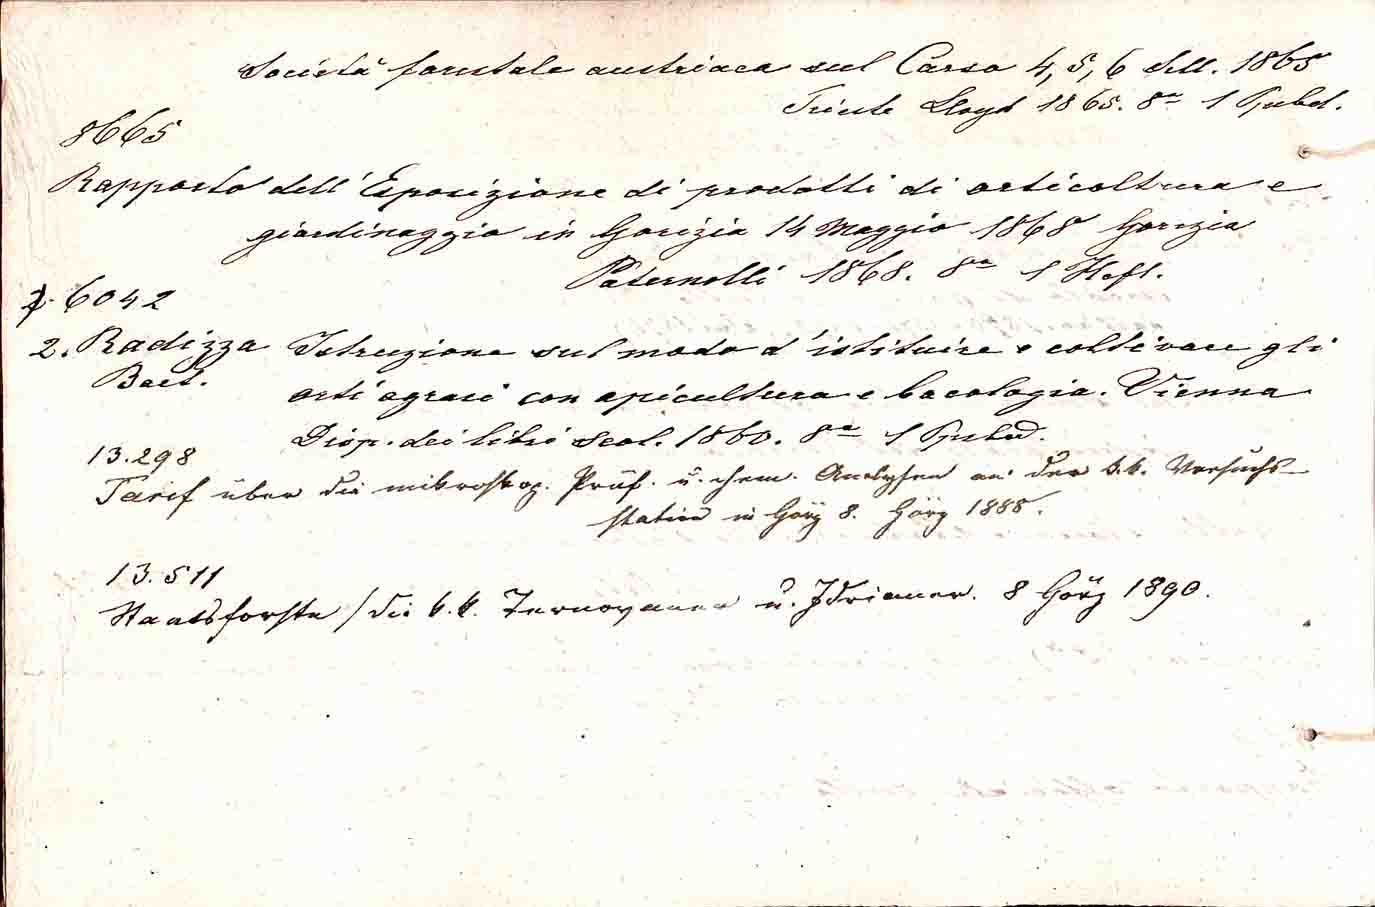 Società forestale austriaca sul Carso 4, 5, 6 Sett. 1865
Trieste Lloyd 1865. 8º 1 Ppbd.
8665
Rapporto dell'Esposizione di prodotti di orticoltura e
giardinaggio in Gorizia 14 Maggio 1868 Gorizia
Paternolli 1868. 8º 1 Heft.
6042
2. Radizza Istruzione sul modo d'istituire e coltivare gli
Bart.
orti agrari con apicultura e bacologia. Vienna
Disp. dei libri scol. 1860. 8º 1 Ppbd.
13.298
Tarif über die mikroskop. Prüf. u. chem. Analysen an der k.k. Versuchs-
station in Görz 8. Görz 1888.
13.511
Staatsforste / die k.k. Ternovaner u. Idrianer. 8 Görz 1890.